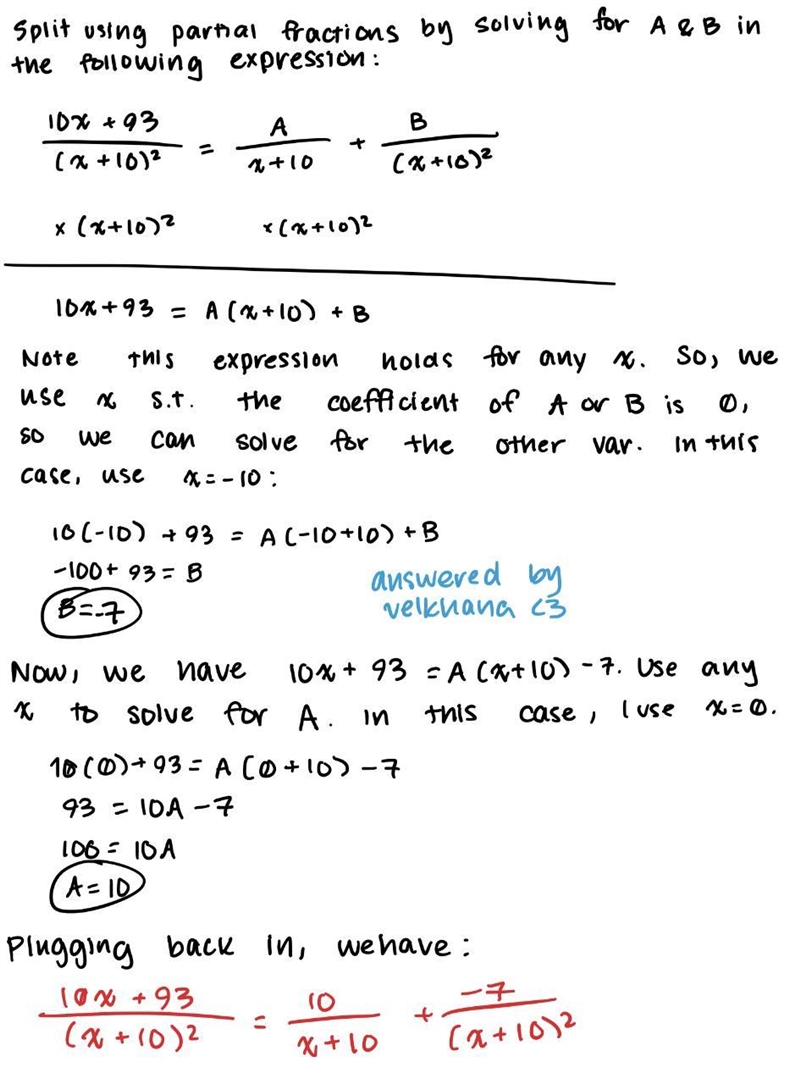 Split using partial fractions by solving for A & B in
the following expression:
10x + 93 / (x+10)² = A / x+10 + B / (x+10)²
× (x+10)² × (x+10)²
10x+93 = A(x+10) + B
Note this expression holds for any x. So, we
use x s.t. the coefficient of A or B is 0,
so we can solve for the other var. In this
case, use x=-10:
10(-10) + 93 = A(-10+10) + B
-100+ 93 = B
B=-7
answered by
velkhana <3
Now, we have 10x + 93 = A(x+10) -7. Use any
x to solve for A. In this case, I use x=0.
10(0)+93 = A(0+10) -7
93 = 10A -7
100 = 10A
A=10
Plugging back in, we have:
10x + 93 / (x+10)² = 10 / x+10 + -7 / (x+10)²